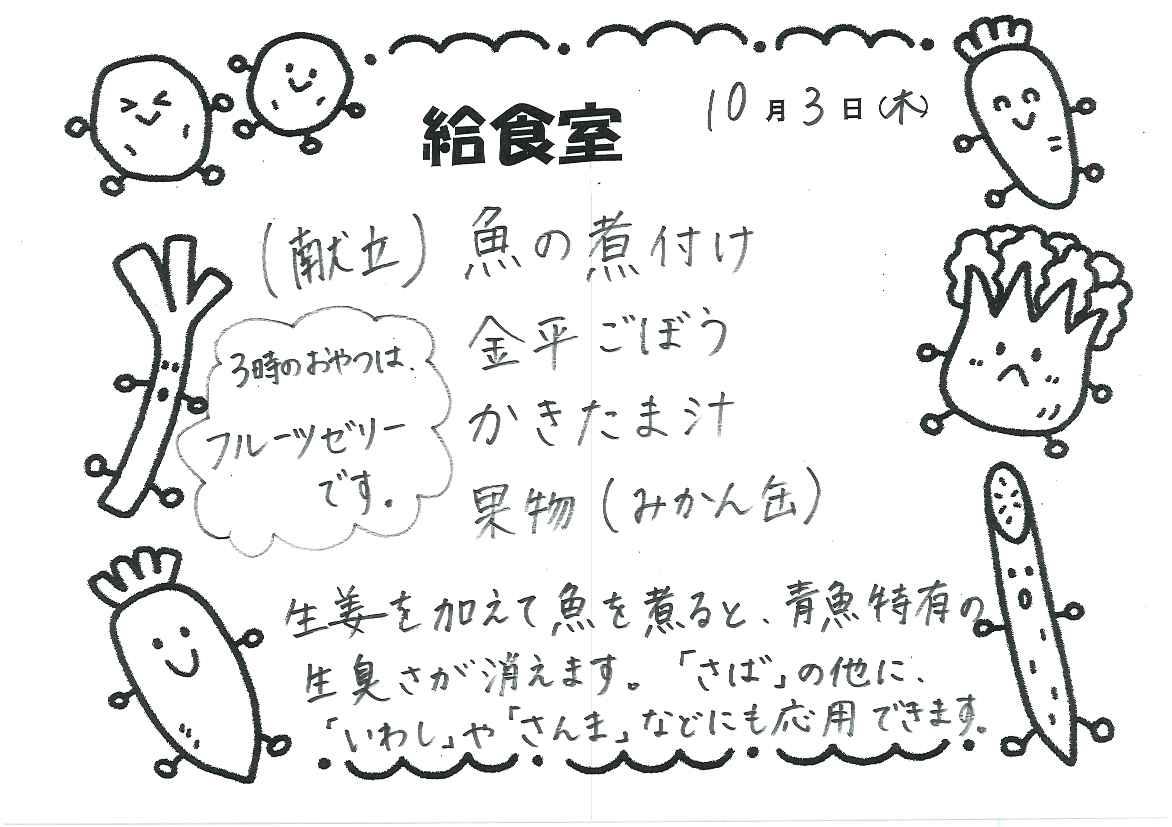 給食室
10月3日(木)
(献立)魚の煮付け
金平ごぼう
かきたま汁
果物(みかん缶)
3時のおやつは、
フルーツゼリー
です。
生姜を加えて魚を煮ると、青魚特有の
生臭さが消えます。「さば」の他に、
「いわし」や「さんま」などにも応用できます。